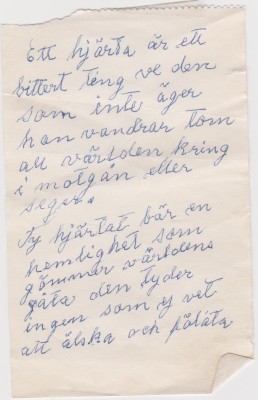 Ett hjärta är ett
bittert ting ve den
som inte äger
han vandrar tom
all världen kring
i motgån eller
seger.
Ty hjärtat bär en
hemlighet som
gömmer världens
gåta den tyder
ingen som ej vet
att älska och påláta